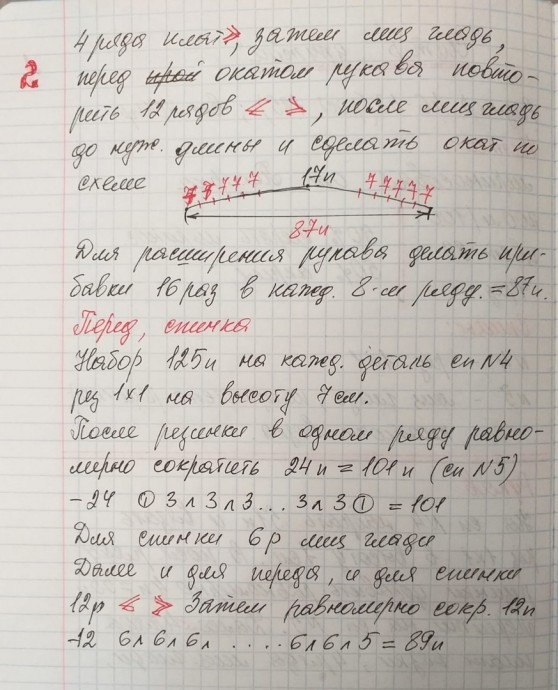 4 ряда плат», затем лиц гладь,
2
перед окатом рукава повто-
рить 12 рядов « », после лиц гладь
до нуж. длины и сделать окат по
схеме
7 7 7 7 7 17п 7 7 7 7 7
87п
Для расширения рукава делать при-
бавки 16 раз в кажд. 8-м ряду. = 87п.
Перед, спинка
Набор 125п на кажд. деталь сп N4
рез 1x1 на высоту 7 см.
После резинки в одном ряду равно-
мерно сократить 24п = 101п (сп N5)
-24 ① 3 ʌ 3 ʌ 3 ... 3 ʌ 3 ① = 101
Для спинки 6р лиц глади
Далее и для переда, и для спинки
12р « » Затем равномерно сокр. 12п
-12 6 ʌ 6 ʌ 6 ʌ ..... 6 ʌ 6 ʌ 5 = 89п